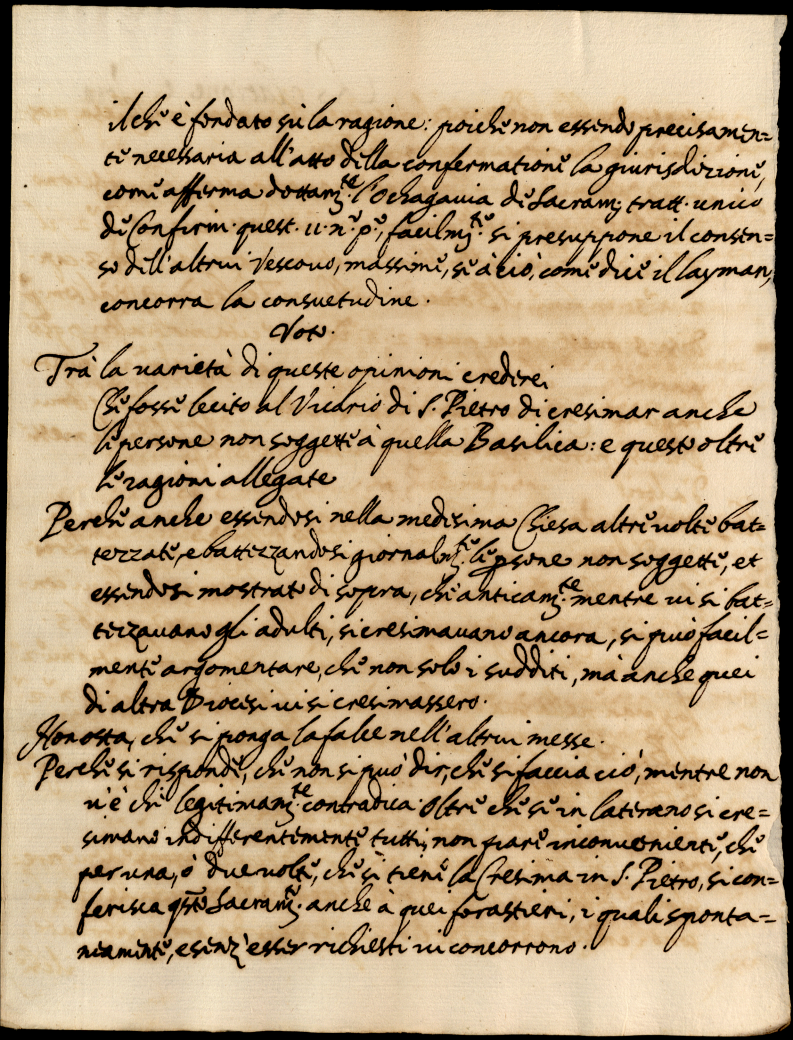 il che è fondato sù la ragione: poiche non essendo precisamen=
te necessaria all'atto della confermatione la giurisdizione,
come afferma dottam.te l'Ochagauia de Sacram; tratt. unico
de Confirm. quest. 11. n.o p.o, facilm.te si presuppone il consen=
so dell'altrui Vescouo, massime, se à ciò, come dice il layman,
concorra la consuetudine.
Voto.
Trà la varietà di queste opinioni crederei
Che fosse lecito al Vicario di S. Pietro di cresimar anche
le persone non soggette à quella Basilica: e questo oltre
le ragioni allegate
Perche anche essendosi nella medesima Chiesa altre uolte bat=
tezzate, e battezzandosi giornalm.te le psone non soggette, et
essendosi mostrato di sopra, che anticam.te mentre ui si bat=
tezzauano gli adulti, si cresimauano ancora, si può facil=
mente argomentare, che non solo i sudditi, mà anche quei
di altra Diocesi ui si cresimassero.
Non osta, che si ponga la falce nell'altrui messe.
Perche si risponde, che non si può dir, che si faccia ciò, mentre non
u'è chi legitimam.te contradica. Oltre che se in laterano si cre=
simano indifferentemente tutti, non pare inconueniente, che
per una, ò due uolte, che si tiene la Cresima in S. Pietro, si con=
ferisca qsto Sacram.to anche à quei forastieri, i quali sponta=
neamente, e senz'esser richiesti ui concorrono.